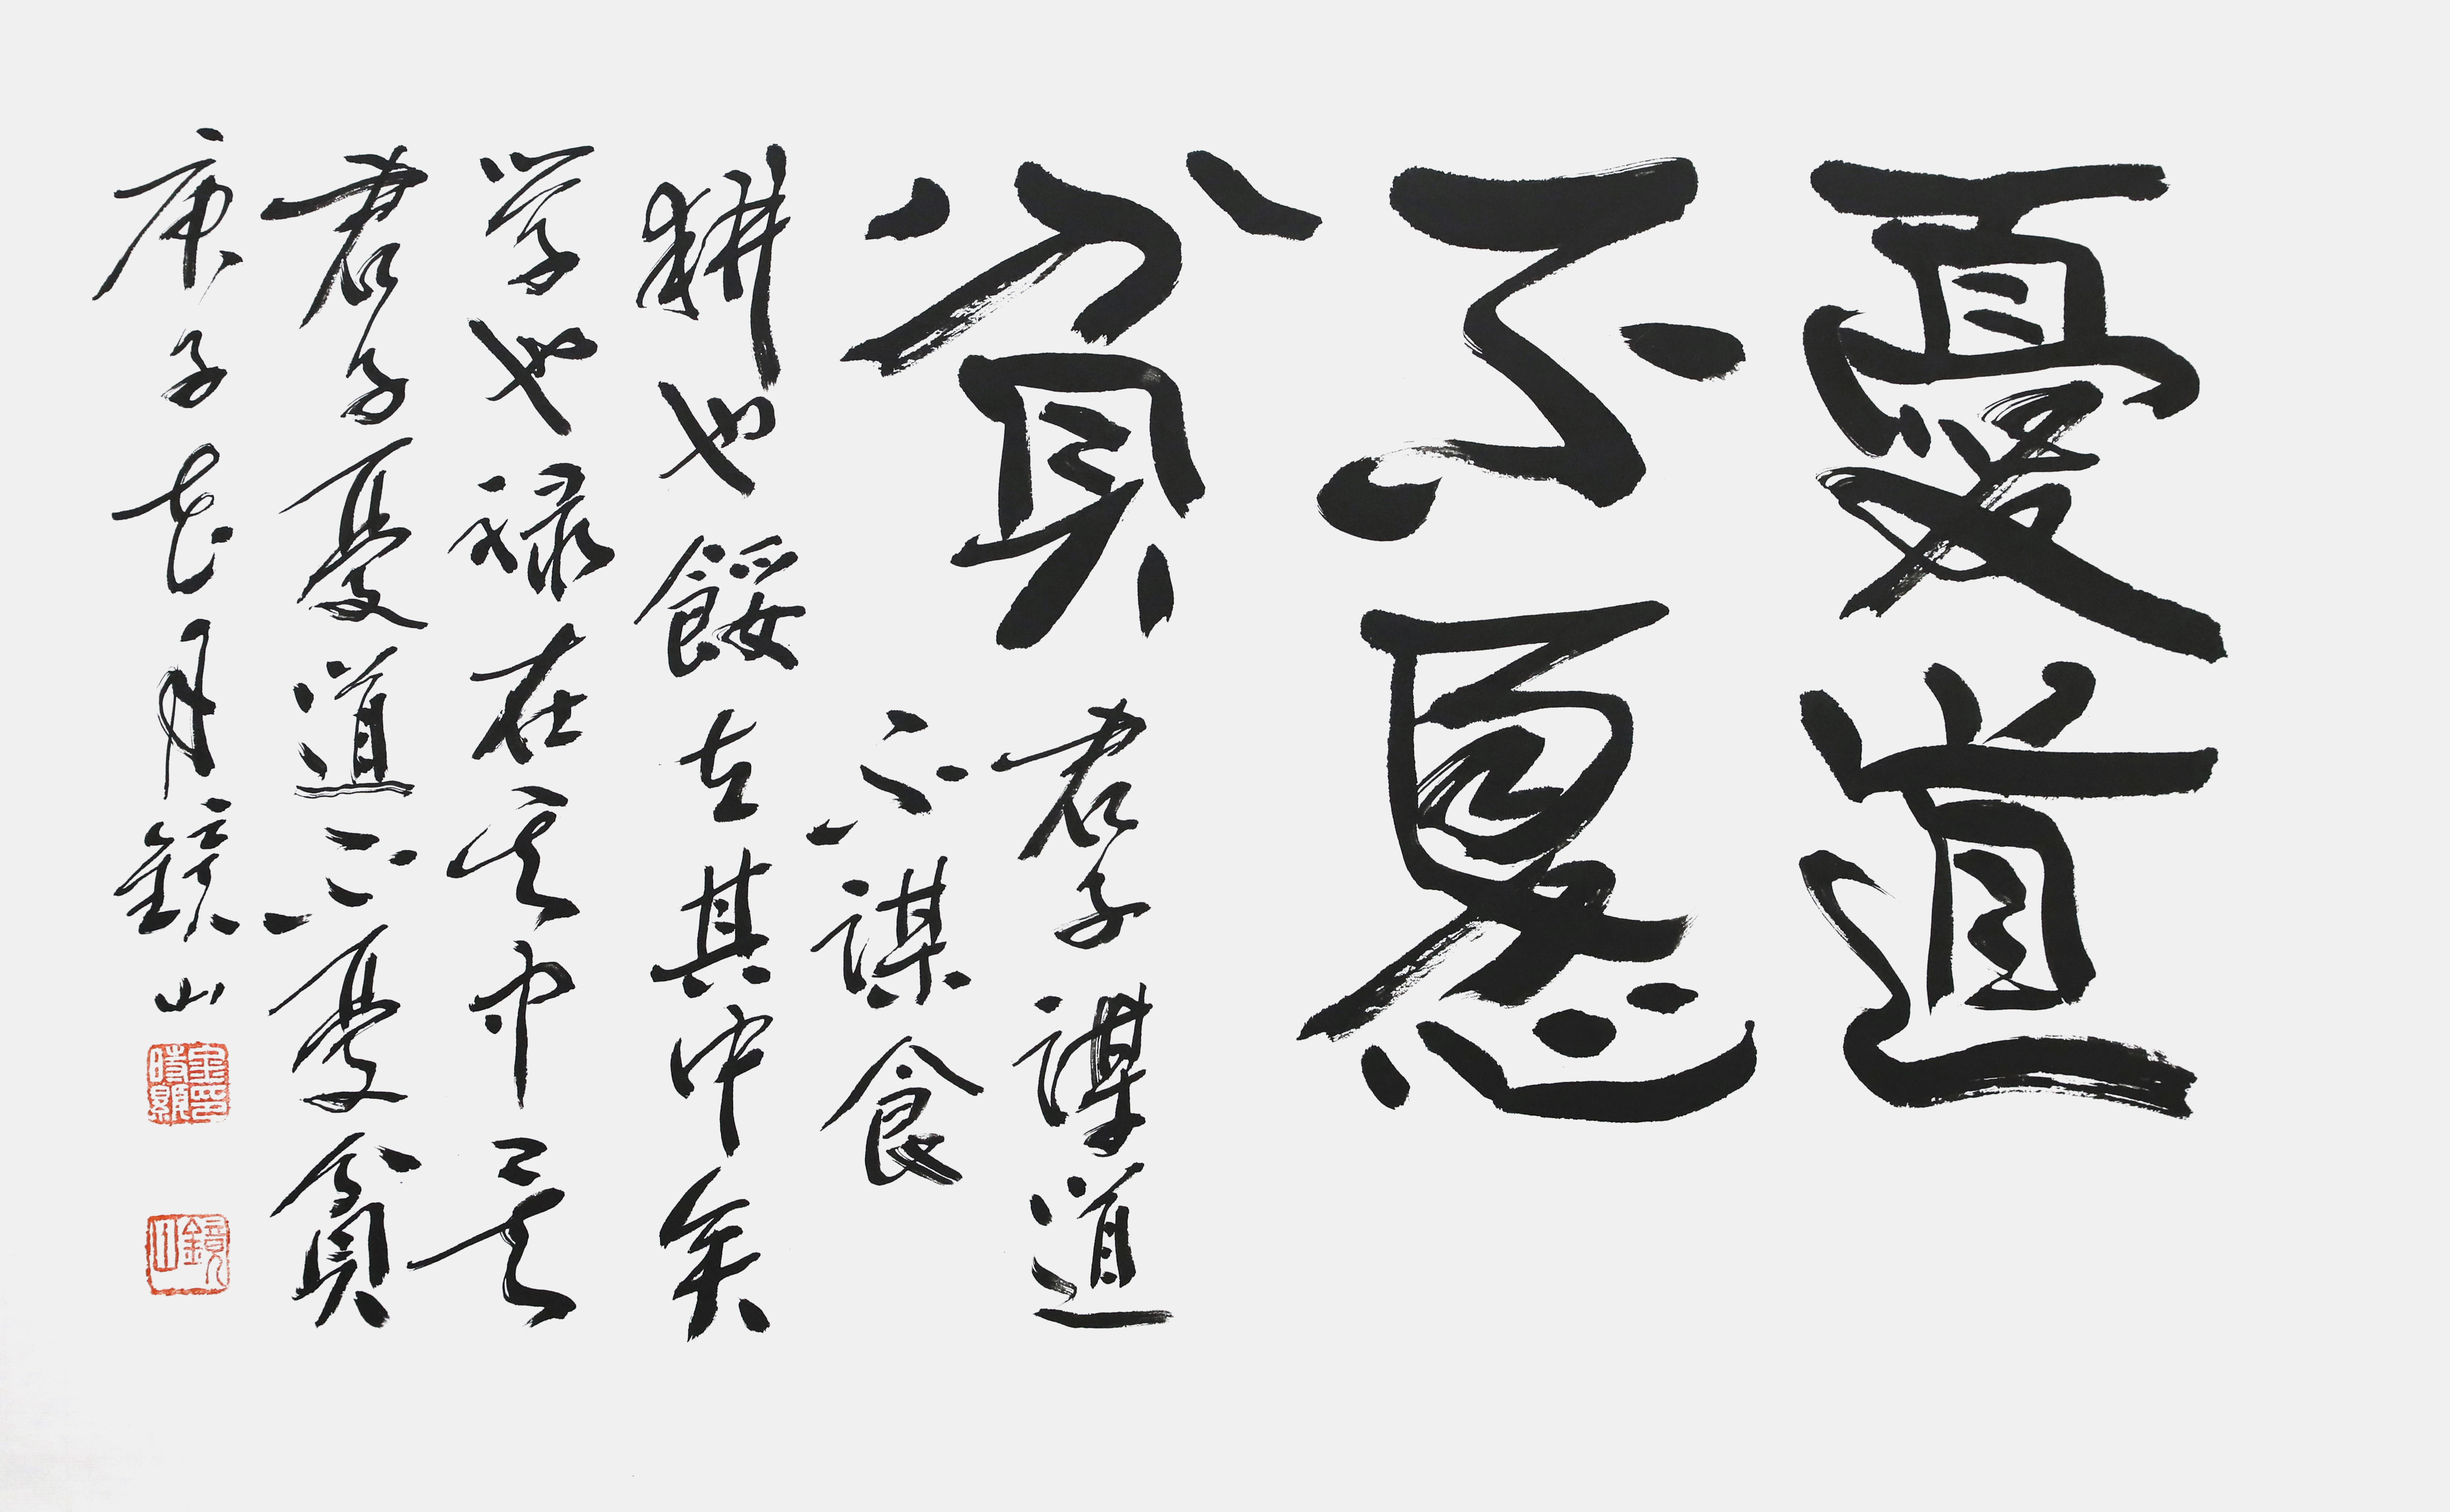 憂道
不憂
貧
君子謀道
不謀食
耕也餒在其中矣
学也禄在其中矣
君子憂道不憂貧
庚子花月鏡山
鏡山